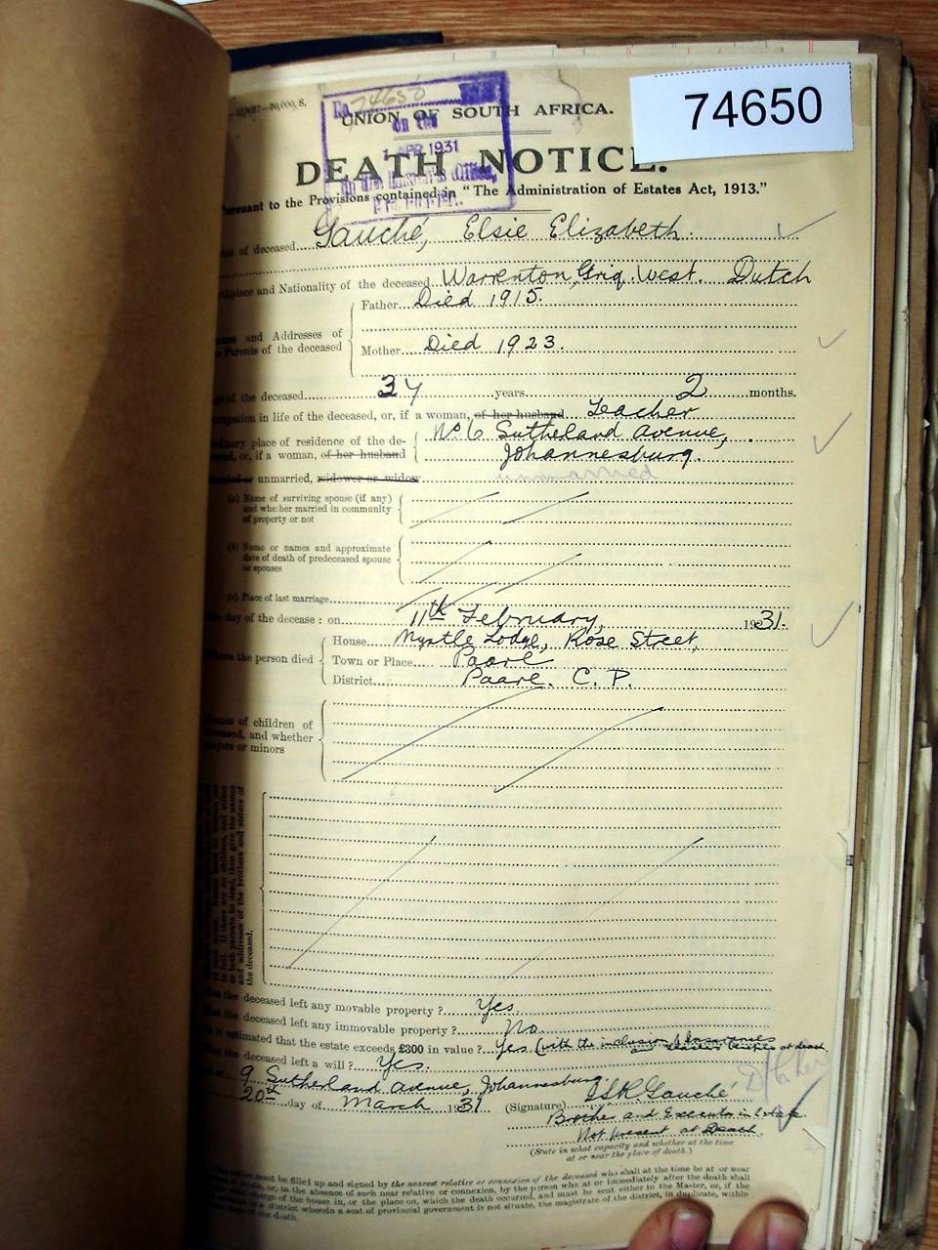 74650
—20,000, S.
No. 74650
UNION OF SOUTH AFRICA.
on the
1 APR 1931
DEATH NOTICE.
Pursuant to the Provisions contained in "The Administration of Estates Act, 1913."
of deceased Gauché, Elsie Elizabeth.
and Nationality of the deceased Warrenton, Griq. West. Dutch
Father Died 1915.
and Addresses of
Parents of the deceased
Mother Died 1923.
of the deceased 34 years. 2 months.
in life of the deceased, or, if a woman, of her husband Teacher
place of residence of the de-
No 6 Sutherland Avenue,
or, if a woman, of her husband
Johannesburg.
unmarried, widower or widow unmarried
(a) Name of surviving spouse (if any)
and whether married in community
of property or not
(b) Name or names and approximate
date of death of predeceased spouse
or spouses
(c) Place of last marriage
day of the decease: on 11th February, 1931.
House Myrtle Lodge, Rose Street,
Where the person died
Town or Place Paarl
District Paarl. C. P.
Names of children of
deceased, and whether
majors or minors
If there are no children, and either
or both parents be dead, then give the names
and addresses of the brothers and sisters of
the deceased.
Has the deceased left any movable property? Yes.
Has the deceased left any immovable property? No.
Is it estimated that the estate exceeds £300 in value? Yes (with the inclusion of
at death
Has the deceased left a will? Yes.
at 9 Sutherland Avenue, Johannesburg
20th day of March 1931 (Signature) Gauché
Brother and Executor in Estate
Not present at Death.
(State in what capacity and whether at the time
at or near the place of death.)
notice must be filled up and signed by the nearest relative or connexion of the deceased who shall at the time be at or near
of death, or, in the absence of such near relative or connexion, by the person who at or immediately after the death shall
charge of the house in, or the place on, which the death occurred, and must be sent either to the Master, or, if the
in a district wherein a seat of provincial government is not situate, the magistrate of the district, in duplicate, within
days of the death.